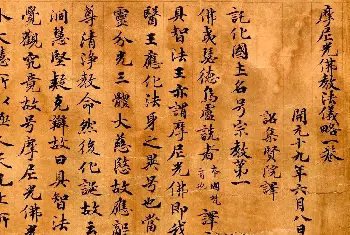 摩尼光佛教法儀略一卷
開元十九年六月八日
詔集賢院譯
託化國主名号宗教第一
佛夷瑟德烏盧詵者本國梵音也譯
具智法王亦謂摩尼光佛即我
醫王應化法身之異号也當
靈分光三體大慈愍故應敵
尊清淨教命然後化誕故云
洞慧堅疑克辯故曰具智法
覺觀究竟故号摩尼光佛光